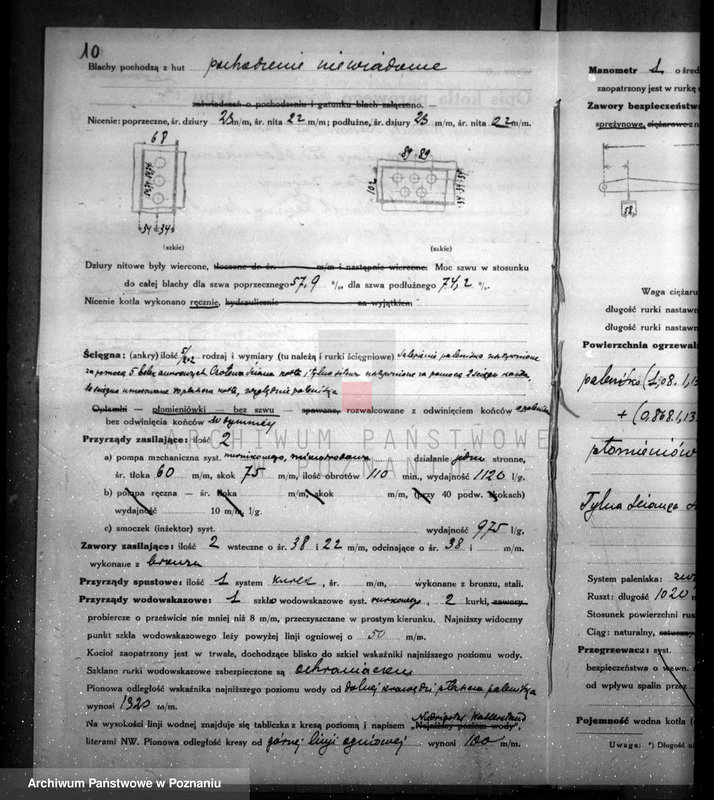 10
Blachy pochodzą z hut pochodzenie niewiadome
zaświadczeń o pochodzeniu i gatunku blach załączono.
Nicenie: poprzeczne, śr. dziury 23 m/m, śr. nita 22 m/m; podłużne, śr. dziury 23 m/m, śr. nita 22 m/m.
68
89 89
102
34 34
(szkic) (szkic)
Dziury nitowe były wiercone, tłoczone do śr. m/m i następnie wiercone. Moc szwu w stosunku
do całej blachy dla szwa poprzecznego 57,9 %, dla szwa podłużnego 74,2 %.
Nicenie kotła wykonano ręcznie, hydraulicznie za wyjątkiem
Ścięgna: (ankry) ilość 5/2+2 rodzaj i wymiary (tu należą i rurki ścięgniowe) Sklepienie paleniska wzmocnione
za pomocą 5 belek ankrowych
Opłomki — płomieniówki — bez szwu — spawane, rozwalcowane z odwinięciem końców
bez odwinięcia końców
Przyrządy zasilające: ilość 2
a) pompa mechaniczna syst. działanie jedno stronne,
śr. tłoka 60 m/m, skok 75 m/m, ilość obrotów 110 min., wydajność 1120 l/g.
b) pompa ręczna — śr. tłoka m/m, skok m/m, (przy 40 podw. skokach)
wydajność 10 m/m, l/g.
c) smoczek (inżektor) syst. wydajność 975 l/g,
Zawory zasilające: ilość 2 wsteczne o śr. 38 i 22 m/m, odcinające o śr. 38 i m/m.
wykonane z bronzu
Przyrządy spustowe: ilość 1 system kurek, śr. m/m, wykonane z bronzu, stali.
Przyrządy wodowskazowe: 1 szkło wodowskazowe syst. rurkowego, 2 kurki, zawory
probiercze o prześwicie nie mniej niż 8 m/m, przeczyszczane w prostym kierunku. Najniższy widoczny
punkt szkła wodowskazowego leży powyżej linji ogniowej o 50 m/m.
Kocioł zaopatrzony jest w trwałe, dochodzące blisko do szkieł wskaźniki najniższego poziomu wody.
Szklane rurki wodowskazowe zabezpieczone 8 są ochraniaczem
Pionowa odległość wskaźnika najniższego poziomu wody od dolnej krawędzi płaszcza paleniska
wynosi 1320 m/m.
Na wysokości linji wodnej znajduje się tabliczka z kresą poziomą i napisem „Najniższy poziom wody", Niedrigster Wasserstand
literami NW. Pionowa odległość kresy od górnej linji ogniowej wynosi 100 m/m.
Manometr 1 o śred
zaopatrzony jest w rurkę s
Zawory bezpieczeństwa
sprężynowe, ciężarowe
Waga ciężaru
długość rurki nastawn
długość rurki nastawn
Powierzchnia ogrzewal
palenisko (1,08. 1,13
+ (0,868.1,13
płomieniów
Tylna ściana
System paleniska:
Ruszt: długość 1020 m
Stosunek powierzchni rusz
Ciąg: naturalny, sztuczny
Przegrzewacz: syst.
bezpieczeństwa o wewn.
od wpływu spalin przez
Pojemność wodna kotła (
Uwaga: *) Długość u
ARCHIWUM PAŃSTWOWE
POZNAŃ
Archiwum Państwowe w Poznaniu